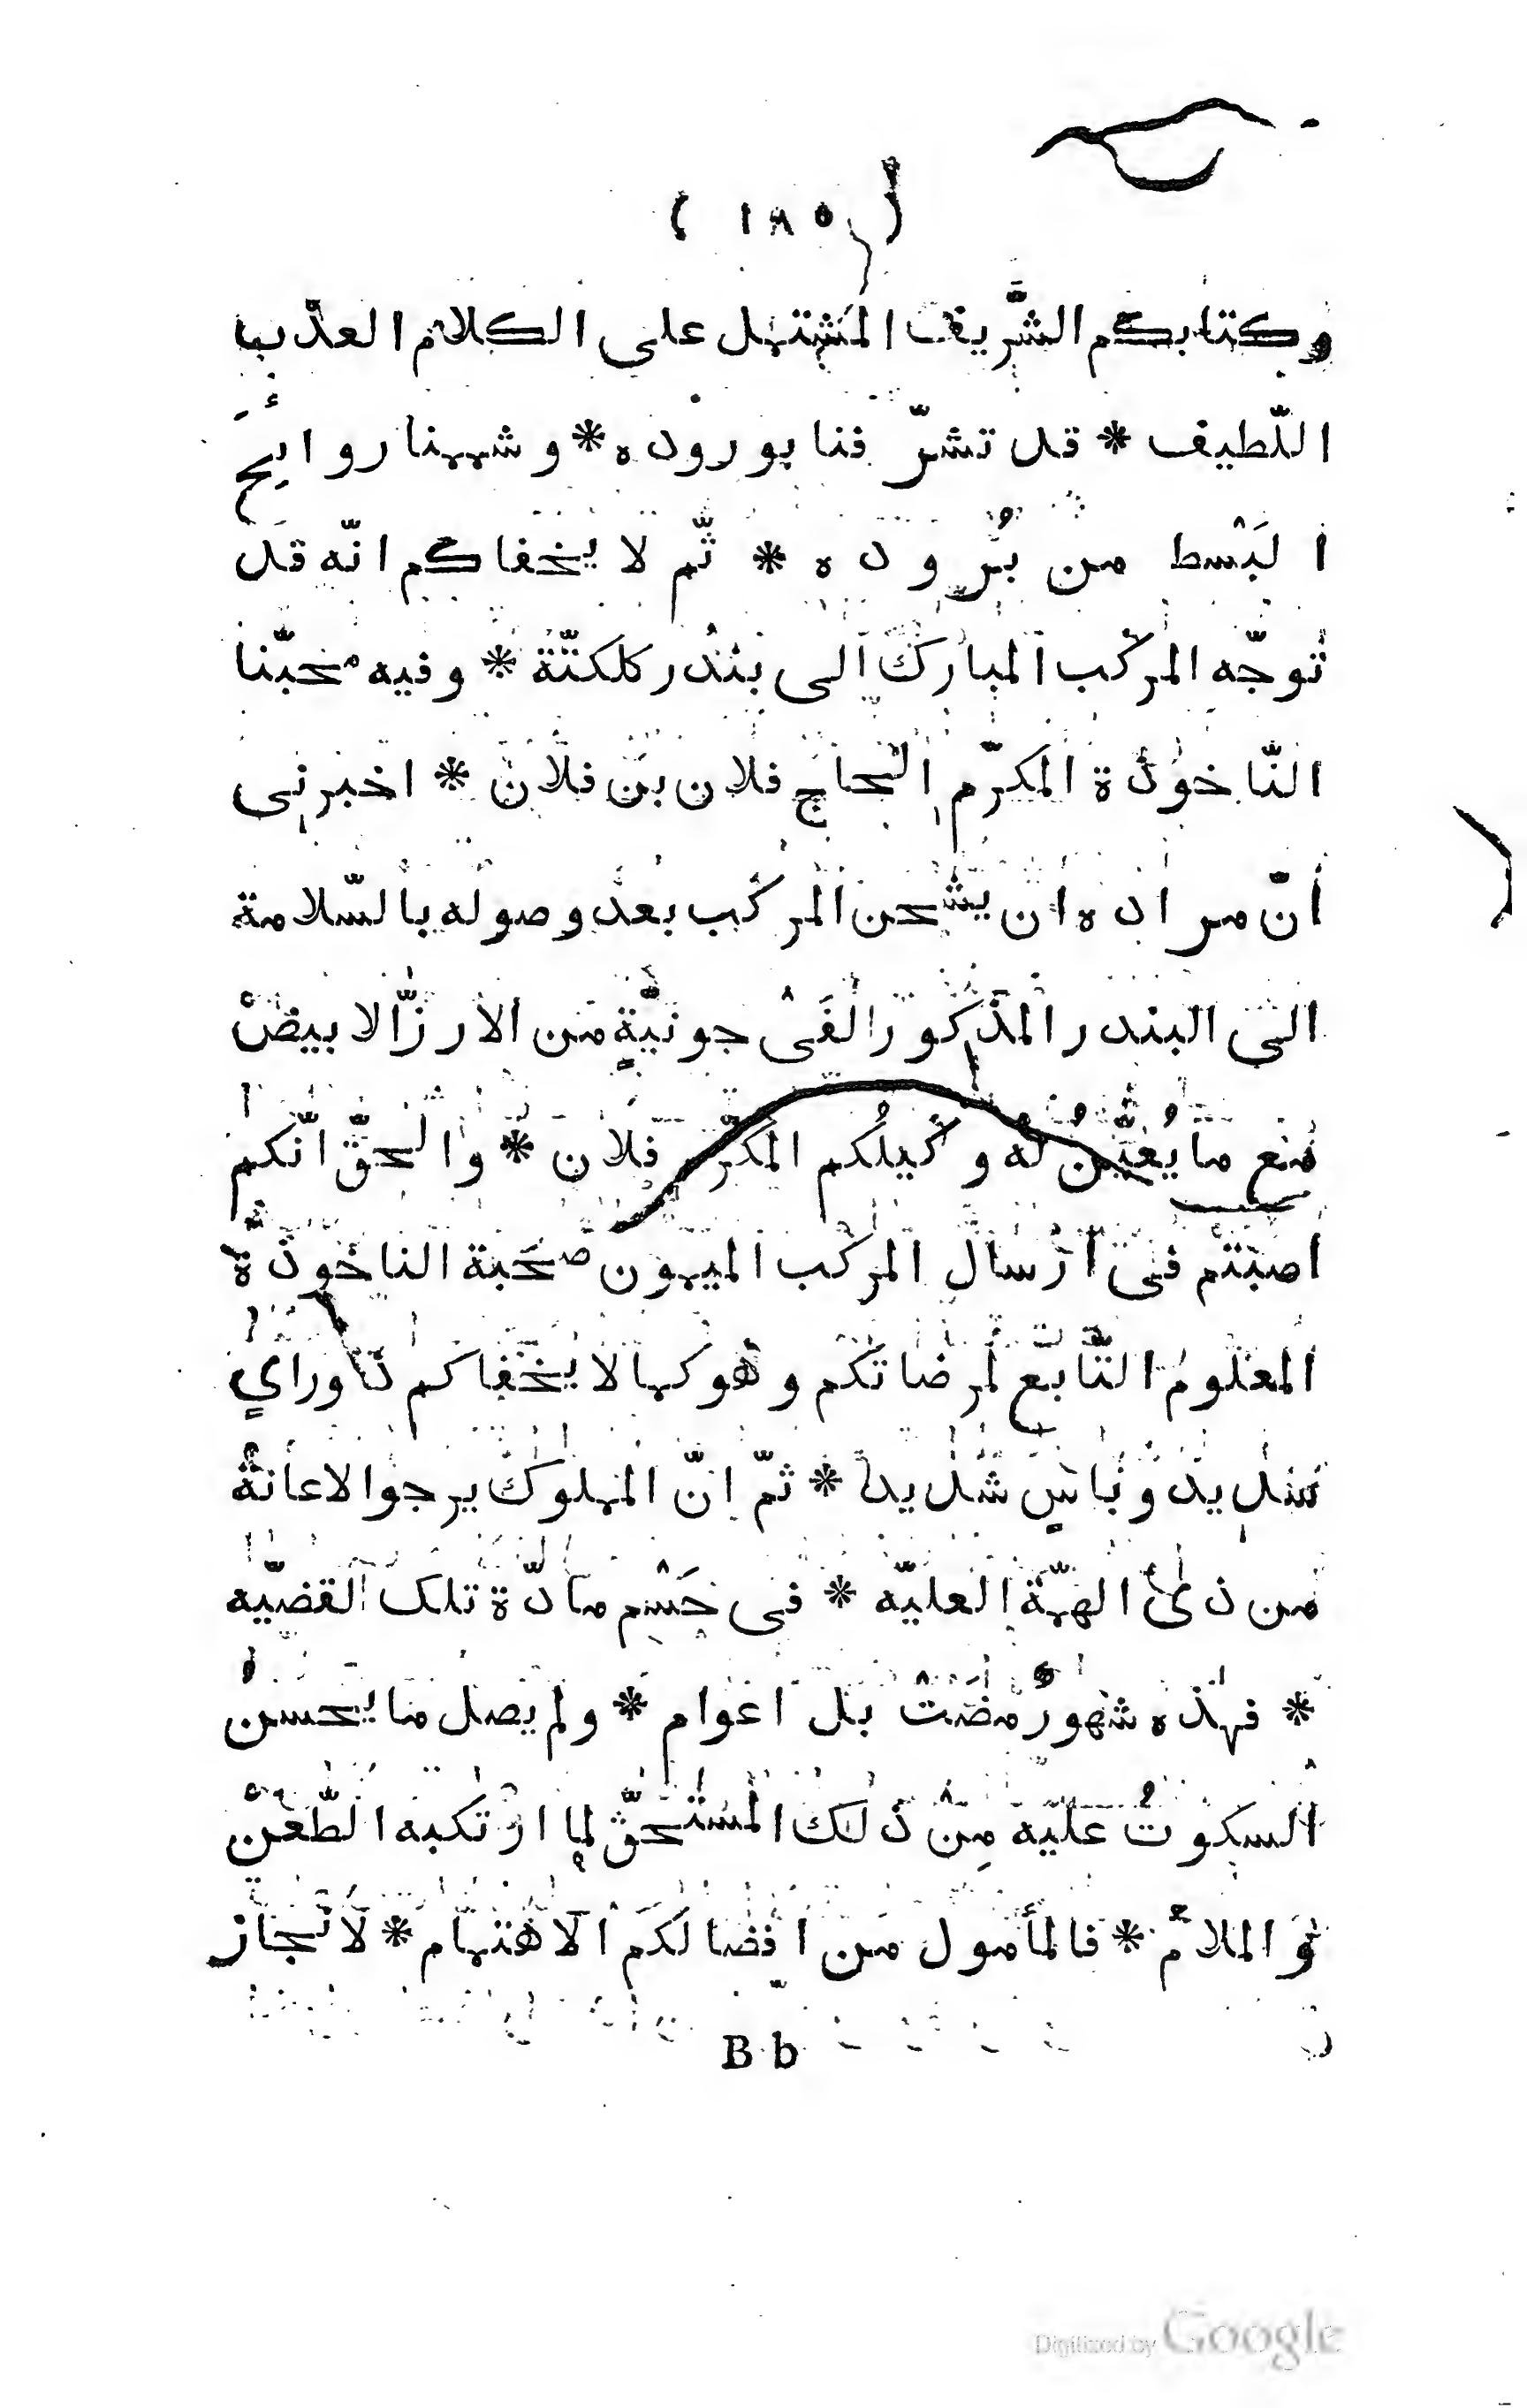 ( ١٨٥ )
وكتابكم الشّريف المشتمل على الكلام العذب
اللّطيف * قد تشرّفنا بوروده * وشممنا روائح
البَسْط من بُروده * ثمّ لا يخفاكم انّه قد
توجّه المركب المبارك الى بندر كلكتّة * وفيه محبّنا
النّاخوذة المكرّم الحاج فلان بن فلان * اخبرنى
انّ مراده ان يشحن المركب بعد وصوله بالسّلامة
الى البندر المذكور الفَىْ جونيّةٍ من الارزّ الابيض
مع ما يُعيّنُ له وكيلُكم المكرّم فلان * والحقّ انّكم
اصبتم فى ارسال المركب الميمون صحبة الناخوذة
المعلوم التّابع لمرضاتكم وهو كما لا يخفاكم ذو راىٍ
سديد وباسٍ شديد * ثمّ انّ المملوك يرجوا الاعانة
من ذى الهمّة العليّه * فى حَسْم مادّة تلك القضيّه
* فهذه شهورٌ مضَتْ بل اعوام * ولم يصل ما يحسن
السكوتُ عليه مِنْ ذلك المستحقّ لما ارتكبه الطّعن
والملام * فالمأمول من افضالكم الاهتمام * لانجاز
B b
Digitized by Google